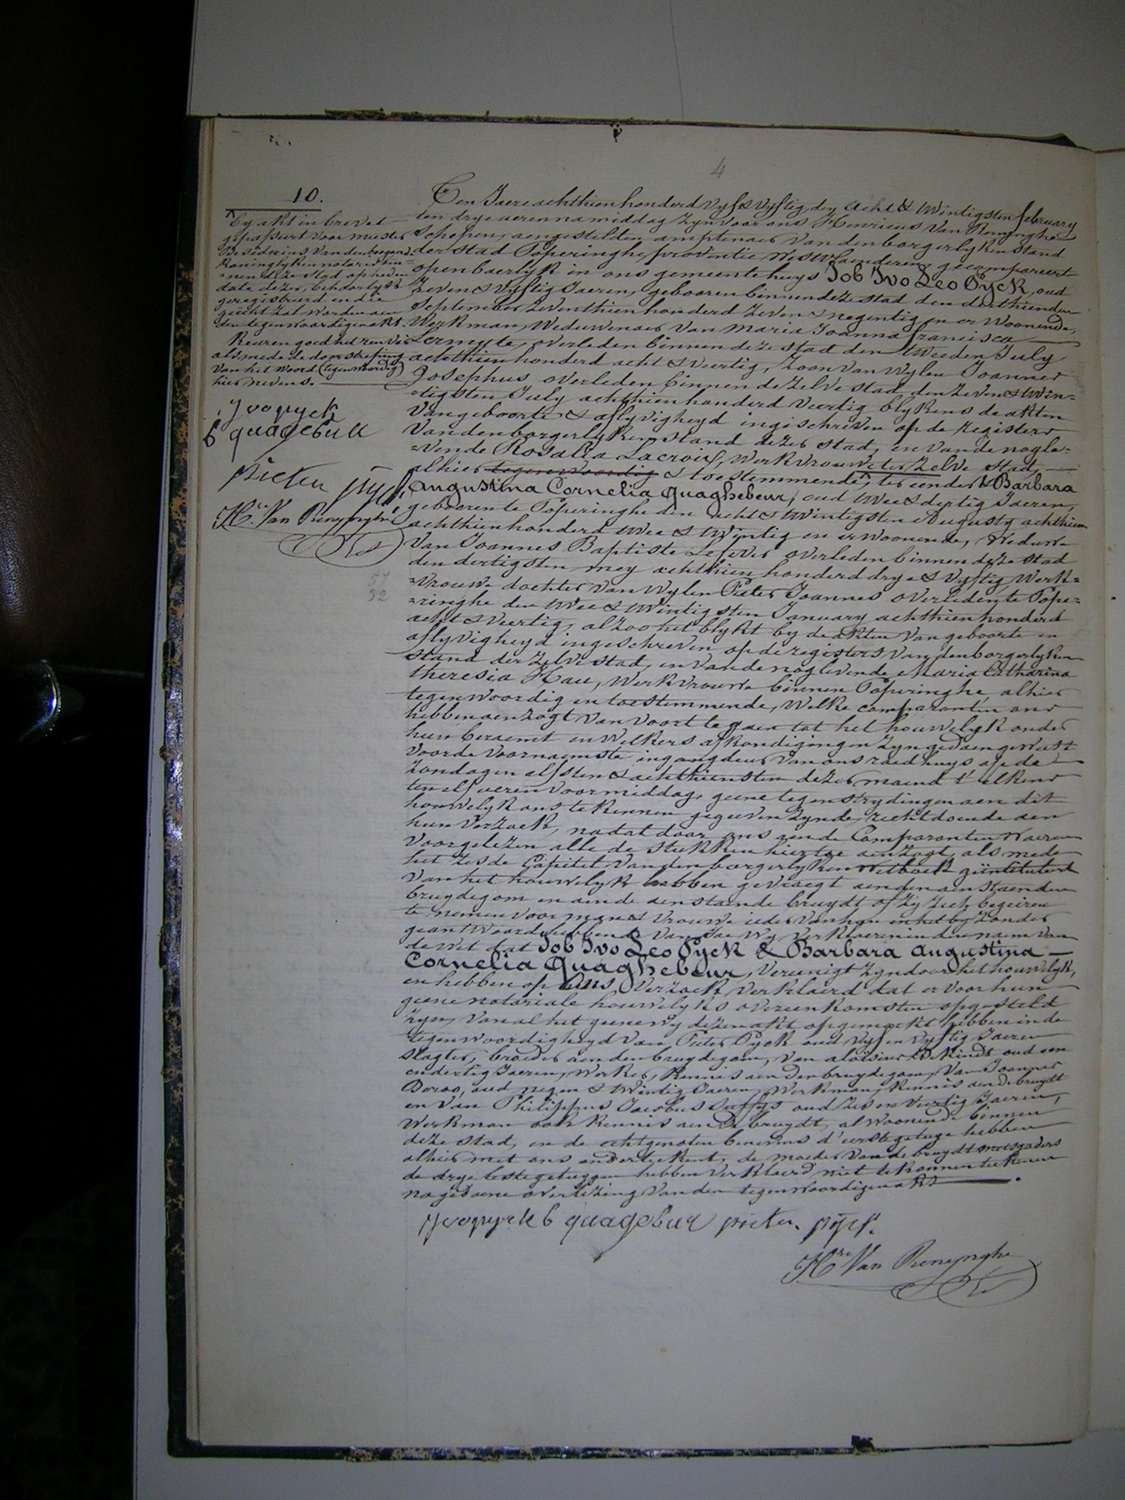 4
10.
By akt in brevet
gepasseert voor meester
Desiderius Vandenbogaerde
koninglyken notaris bin-
nen deze stad op heden
date dezer, behoorlyk
geregistreerd en die
gehecht zal worden aen
den tegenwoordigen akt.
Keuren goed het renvoi
als mede de doorstrafing
van het woord (tegenwoordig)
hier nevens.
Ivo pyck
b quagebur
pieter pyck
Hri Van Renynghe
57
32
Ten Jaere achthien honderd vyf & vyftig, den acht & twintigsten february
ten drye ueren namiddag zyn voor ons Henricus Van Renynghe
Schepen, aengestelden amptenaer van den borgerlyken stand
der stad Poperinghe provintie Westvlaenderen gecompareert
openbaerlyk in ons gemeentehuys Job Ivo Leo Pyck, oud
zeven & vyftig Jaeren, gebooren binnen deze stad den derthienden
September zeventhien honderd zeven & negentig en er woonende,
Werkman, Weduwenaer van Maria Joanna Francisca
Vermote, overleden binnen deze stad den tweeden July
achthien honderd acht & veertig, zoon van wylen Joannes
Josephus overleden binnen de zelve stad den zeven & twin-
tigsten July achthien honderd veertig blykens de akten
van geboorte & aflyvigheyd ingeschreven op de registers
van den borgerlyken stand dezer stad, en van de nogle-
vende Rosalia Lacroix, Werkvrouwe ter zelve stad,
alhier tegenwoordig & toestemmende, ter eender & Barbara
Augustina Cornelia Quaghebeur, oud twee & dertig Jaeren,
gebooren te Poperinghe den acht & twintigsten Augusty achthien
achthien honderd twee & twintig en er woonende, Weduwe
van Joannes Baptiste Lefever overleden binnen deze stad
den dertigsten mey achthien honderd drye & vyftig, Werk-
vrouwe dochter van wylen Pieter Joannes overleden te Pope-
ringhe den twee & twintigsten January achthien honderd
acht & veertig, alzoo het blykt by de akten van geboorte en
aflyvigheyd ingeschreven op de registers van den borgerlyken
stand der zelve stad, en van de noglevende Maria Catharina
Theresia Haeu, Werkvrouwe binnen Poperinghe, alhier
tegenwoordig en toestemmende, Welke comparanten ons
hebben aenzogt van voort te gaen tot het houwelyk onder
hun beraemt en welkers afkondigingen zyn gedaen geweest
voor de voornaemste ingangdeur van ons raedhuys op de
zondagen elfsten & achthiensten dezer maend t'elkens
ten elf ueren voormiddag, geene tegenstrydingen aen dit
houwelyk ons te kennen gegeven zynde, recht doende aen
hun verzoek, nadat door ons aen de Comparanten waeren
voorgelezen alle de stukken hiertoe aenzogt als mede
het zesde Capittel van den borgerlyken Wetboek geïntituleert
van het houwelyk hebben gevraegt aen den aenstaenden
bruydegom en ainde aenstaende bruydt of zy zich begeiren
te nemen voor man & vrouwe ieder van hun en het by zonder
geantwoord hebbende van Jae wy verklaeren in den naem van
de Wet dat Job Ivo Leo Pyck & Barbara Augustina
Cornelia Quaghebeur, vereenigt zyn door het houwelyk,
en hebben op ons, verzoek, verklaerd dat er voor hun
geene notariale houwelyks overeenkomsten opgesteld
zyn, van al het geene wy dezen akt opgemaekt hebben in de
tegenwoordigheyd van Pieter Pyck oud vyf en vyftig Jaeren
slagter, broeder aen den bruydegom, van aloisius Dekindt oud een
en dertig Jaeren, Werker, Kennis aen den bruydegom, van Joannes
Deroo, oud negen & twintig Jaeren, Werkman, Kennis aen de bruydt
en van Philippus Jacobus Suffys oud zes en veertig Jaeren,
Werkman ook Kennis aen de bruydt, al woonende binnen
deze stad, en de echtgenoten benevens d'eerste getuge hebben
alhier met ons onderteekent, de moeder van de bruydt nevensaders
de drye leste getuygen hebben verklaerd niet te konnen teekenen
na gedaene overlezing van den tegenwoordigen akt.
Ivo pyck b quagebur pieter pyck.
Hri Van Renynghe